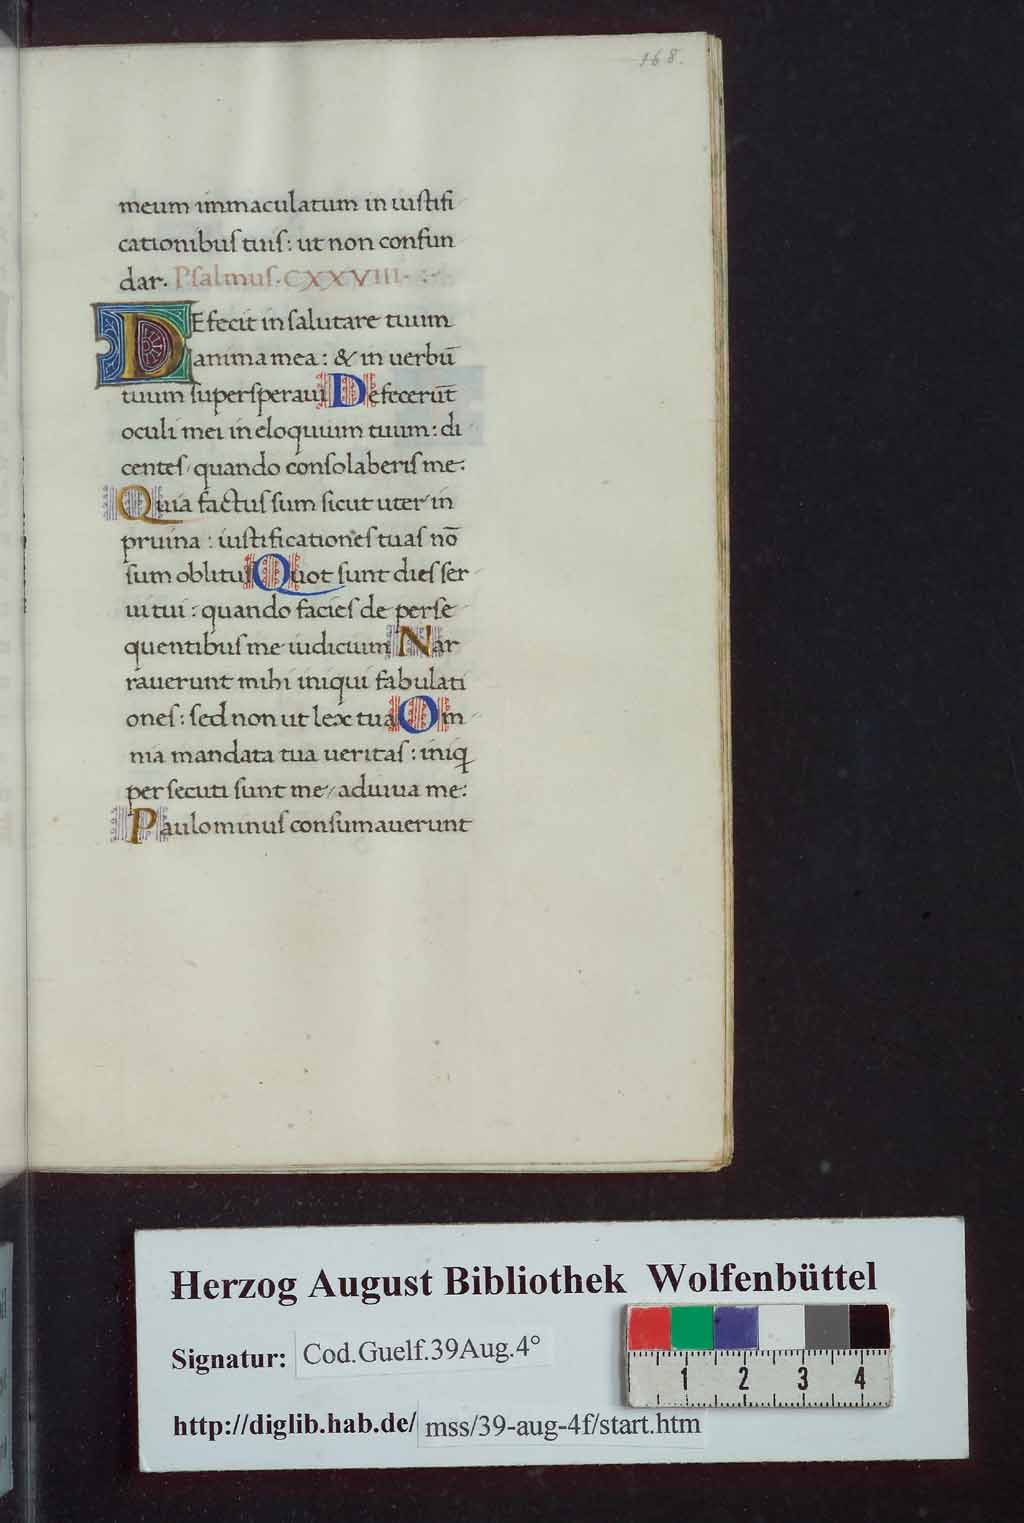 168.
meum immaculatum in iustifi
cationibus tuis: ut non confun
dar. Psalmus. CXXVIII.
DEfecit in salutare tuum
anima mea: & in uerbū
tuum supersperaui Defecerūt
oculi mei in eloquium tuum: di
centes/ quando consolaberis me.
Quia factus sum sicut uter in
pruina: iustificationes tuas nō
sum oblitus Quot sunt dies ser
ui tui: quando facies de perse
quentibus me iudicium Nar
rauerunt mihi iniqui fabulati
ones: sed non ut lex tua Om
nia mandata tua ueritas: iniq
persecuti sunt me/ adiuua me.
Paulominus consumauerunt
Herzog August Bibliothek Wolfenbüttel
Signatur: Cod.Guelf.39Aug.4°
http://diglib.hab.de/ mss/39-aug-4f/start.htm
1 2 3 4